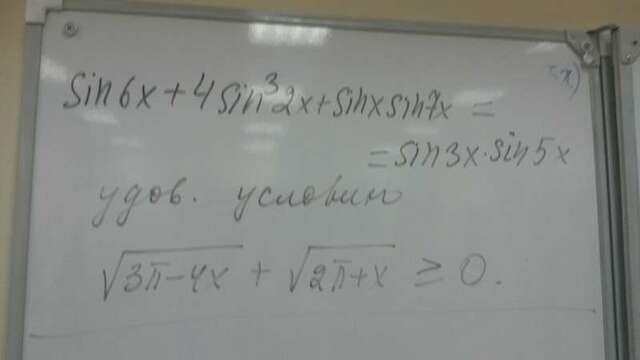 sin6x+4sin³2x+sinxsin7x=
=sin3x·sin5x
удов. условию
√3π-4x + √2π+x ≥ 0.